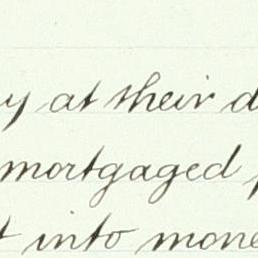 y at their d
mortgaged p
t into mone